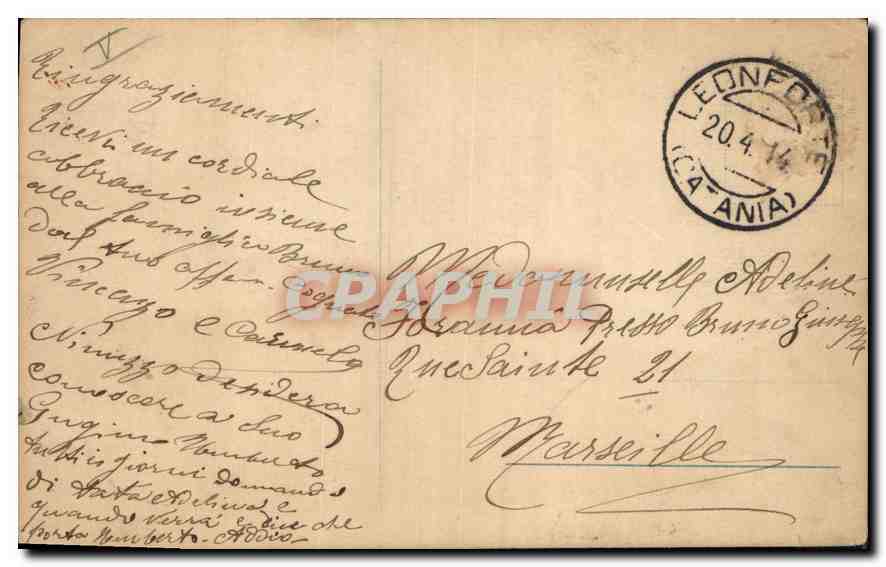 Ringraziamenti
Ricevi un cordiale
abbraccio insieme
alla famiglia Bruno
dal tuo affmo. Cognato
Vincenzo e Carmela
Ninuzzo desidera
conoscere a suo
Cugino Umberto
tutti i giorni domanda
di tata Adelina e
quando verrà e dice che
porta Umberto - Addio -
LEONFORTE
20.4.14
(CATANIA)
Madamuselle Adeline
Presso Bruno Giuseppe
Rue Sainte 21
Marseille
CPAPHIL